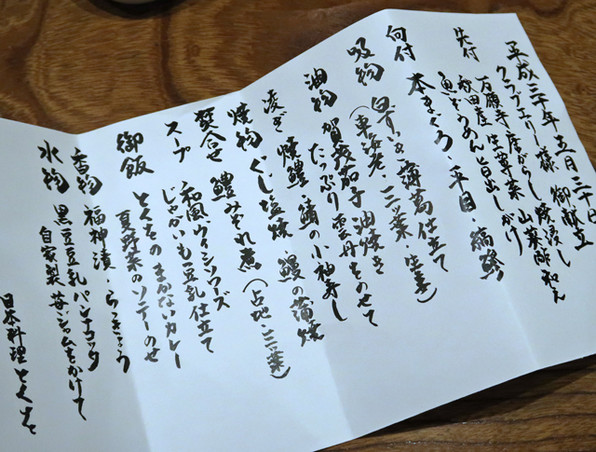 平成三十年五月三十日
クラブエリー様 御献立
先付 万願寺唐がらし焼浸し
秋田産 生蓴菜 山葵酢和え
魚ぞうめん旨出しがけ
向付 本まぐろ・平目・縞鯵
吸物 白ずいき 薄葛仕立て
(車海老・三つ葉・生姜)
油物 賀茂茄子油焼き
たっぷり雲丹をのせて
凌ぎ 焼鱧・鯖の小袖寿し 鰻の蒲焼
焼物 ぐじ塩焼
焚合せ 鱧みぞれ煮(占地・三つ葉)
スープ 和風ウィシソワーズ
じゃがいも豆乳仕立て
御飯 とくをのまかないカレー
夏野菜のソテーのせ
香物 福神漬・らっきょう
水物 黒豆豆乳パンナコッタ
自家製 苺ジャムをかけて
日本料理 とくを